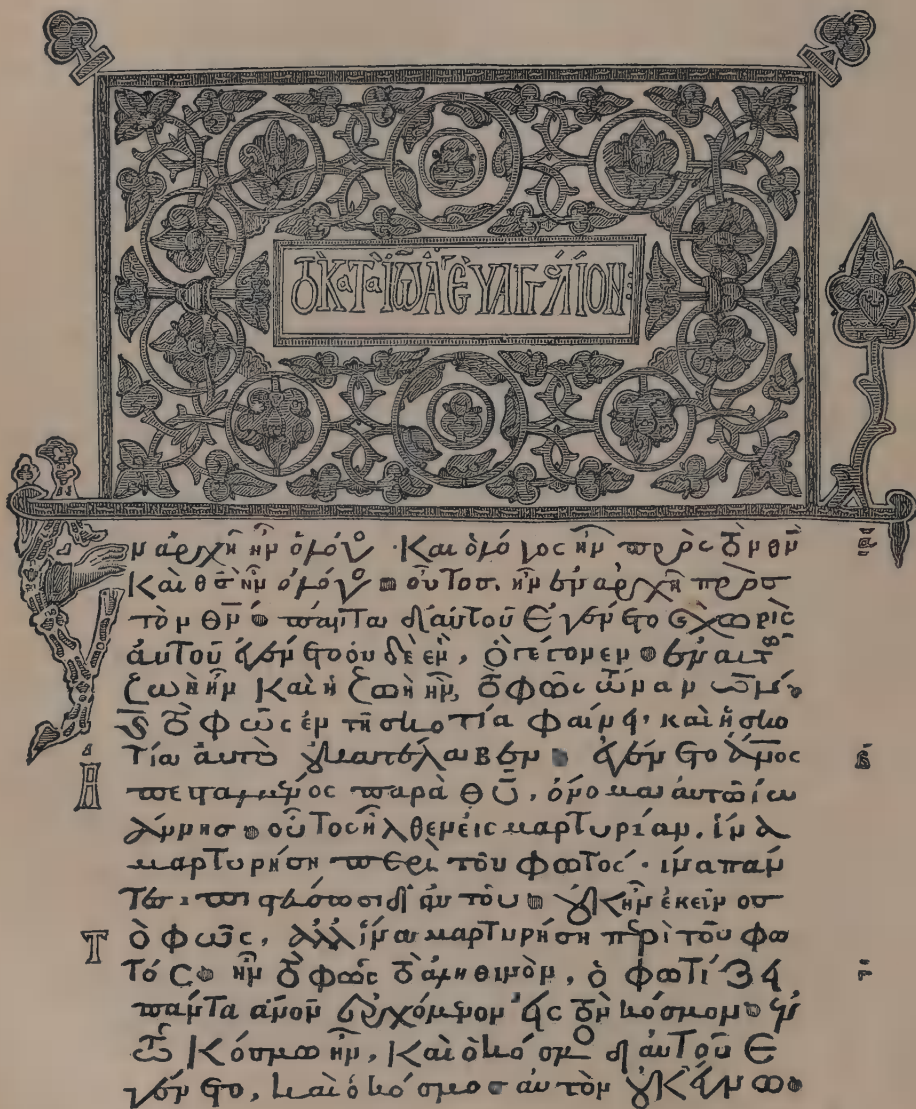 ΤὸΚαΤαΙω̅ΑΓΕΥΑΓΓέλΙΟΝ:
Ἐν ἀρχῆ ἦν ὁ λόγος· Καὶ ὁ λόγος ἦν πρὸς τὸν θ̅ν̅ α̅
Καὶ θ̅σ̅ ἦν ὁ λόγος οὗτοσ. ἦν ἐν ἀρχῆ πρὸσ
τὸν θ̅ν̅ πάντα δι αὐτοῦ ἐγένετο χωρὶς
αὐτοῦ ἐγένετο οὐδὲ ἐν, ὃ γέγονεν ἐν αυτῶ
ζωὴ ἦν Καὶ ἡ ζωὴ ἦν, τὸ φῶς τῶν α̅ν̅ω̅ν̅
Καὶ τὸ φῶς ἐν τῆ σκοτία φαίνει· καὶ ἡ σκο
τία ἀυτὸ οὐ κατέλαβεν ἐγένετο ἄ̅ν̅ο̅ς̅ β̅
ἀπεσταλμένος παρὰ θ̅υ̅, ὄνομα ἀυτῶ ἰω
άννησ οὗτος ἦλθεν εἰς μαρτυρίαν. ἵνα
μαρτυρήση περὶ τοῦ φωτός· ἵνα παν
τες πιστεύσωσι δι αὐτοῦ οὐκ ἦν ἐκεῖνοσ
τὸ φῶς, ἀλλ ἵνα μαρτυρήση περὶ τοῦ φω
τός ἦν τὸ φῶς τὸ ἀληθινὸν, ὃ φωτίζει γ̅
πάντα α̅ν̅ο̅ν̅ ἐρχόμενον εἰς τὸν κόσμον ἐν
τῶ Κόσμω ἦν, Καὶ ὁ κόσμος δι αὐτοῦ ἐ
γένετο, καὶ ὁ κόσμοσ αυτὸν οὐκ ἔγνω